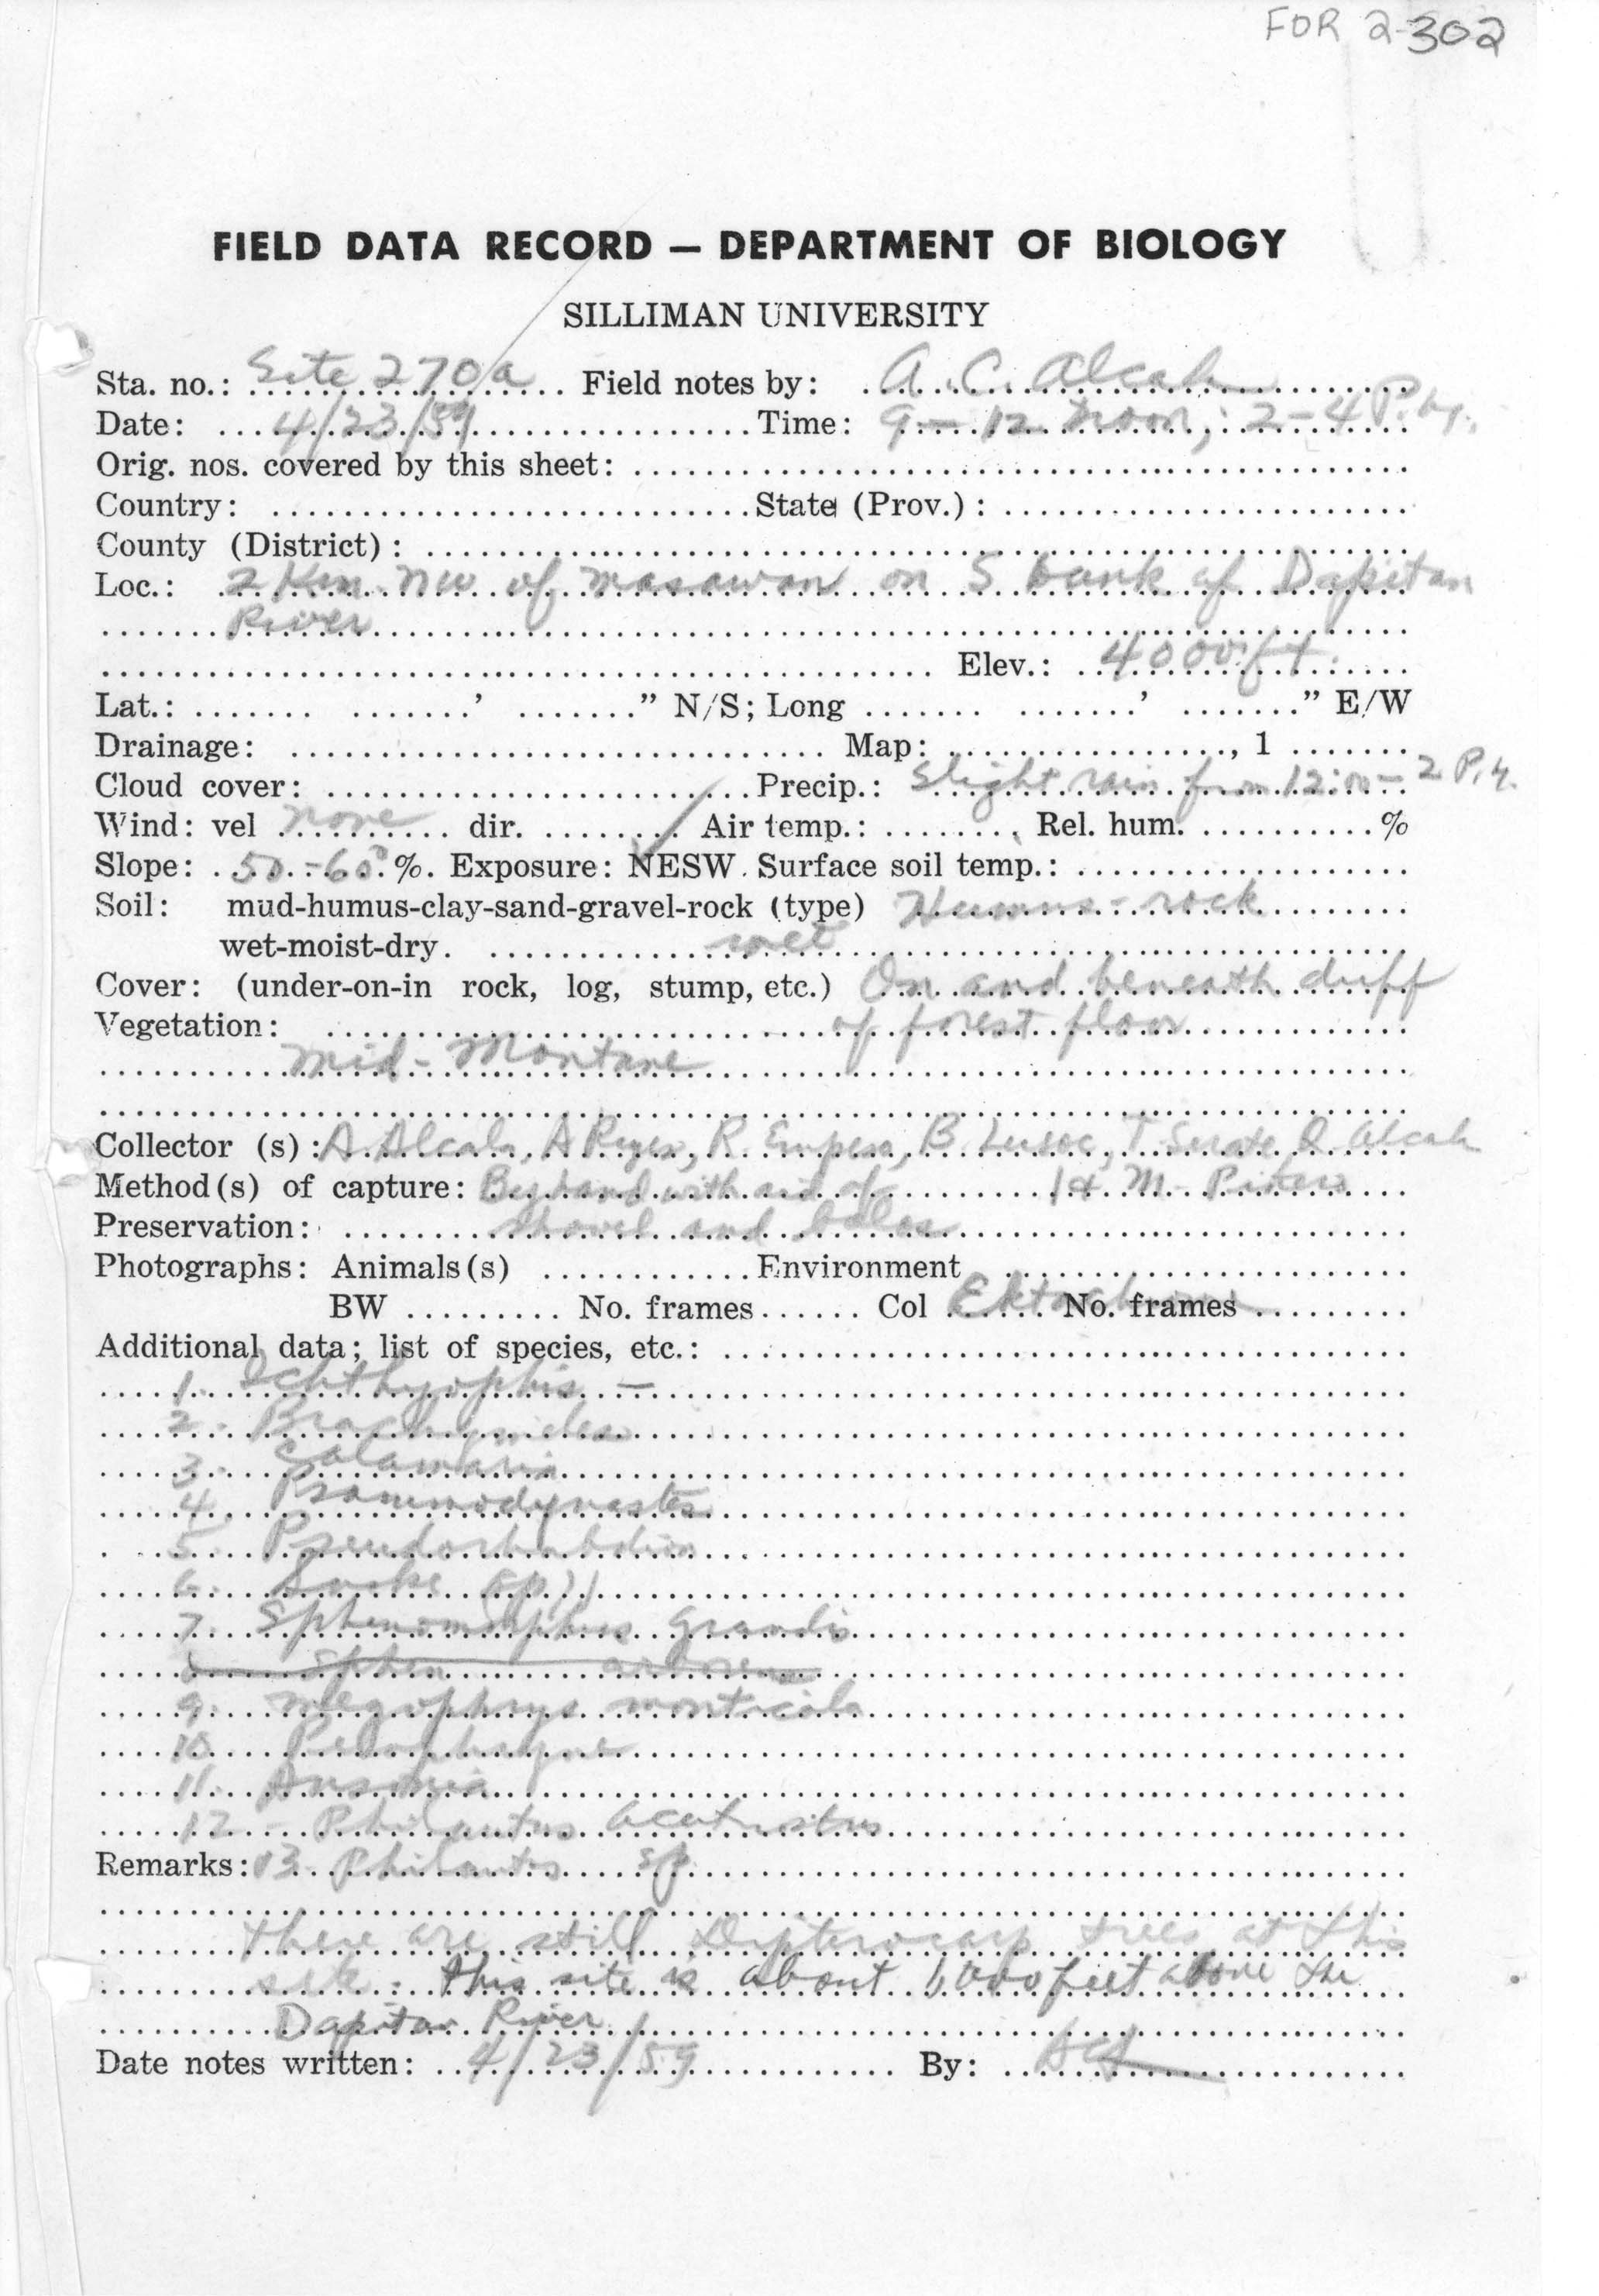 FOR 2-302
FIELD DATA RECORD — DEPARTMENT OF BIOLOGY
SILLIMAN UNIVERSITY
Sta. no.: Site 270a Field notes by: A. C. Alcala
Date: 4/23/59 Time: 9 – 12 noon; 2 – 4 P.M.
Orig. nos. covered by this sheet:
Country: State (Prov.):
County (District):
Loc.: 2 Km. NW of Masawan on S bank of Dapitan
River
Elev.: 4000 ft.
Lat.: ' " N/S; Long ' " E/W
Drainage: Map: , 1
Cloud cover: Precip.: Slight rain from 12:00 – 2 P.M.
Wind: vel none dir. Air temp.: Rel. hum. %
Slope: 50-60° %. Exposure: NESW. Surface soil temp.:
Soil: mud-humus-clay-sand-gravel-rock (type) Humus - rock
wet-moist-dry. wet
Cover: (under-on-in rock, log, stump, etc.) On and beneath duff
Vegetation: of forest floor
Mid-Montane
Collector (s): A. Alcala, A Reyes, R. Empeso, B. Lusoc, T. Alcala
Method(s) of capture: By hand with aid of & M.
Preservation: shovel and bolos
Photographs: Animals(s) Environment
BW No. frames Col Ektachrome No. frames
Additional data; list of species, etc.:
1. Ichthyophis –
2. Brachymeles
3. Calamaria
4. Psammodynastes
5. Pseudorhabdion
6. Snake sp.
7. Sphenomorphus grandis
Sphen
9. Megophrys monticola
10. Pelophryne
11. Ansonia
12 - Philautus acutirostris
Remarks: 13. Philautus sp.
There are still Dipterocarp trees at this
site. This site is about 1,000 feet above the
Dapitan River
Date notes written: 4/23/59 By: ACA